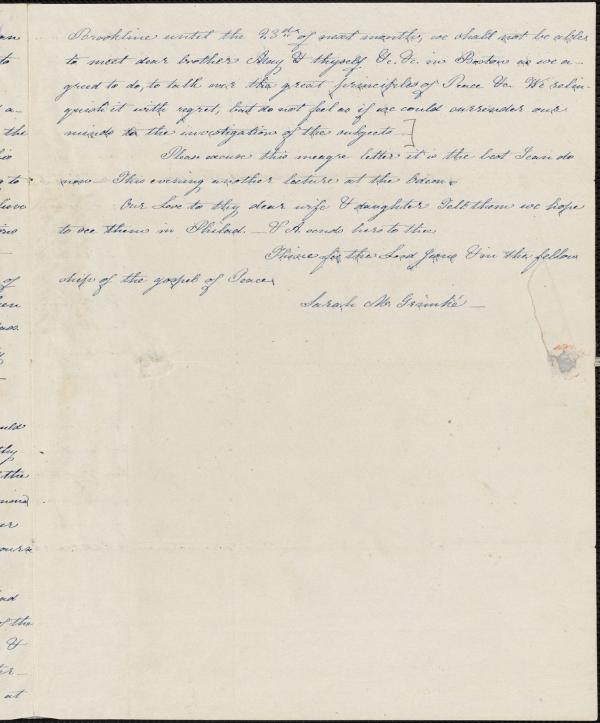 Brookline until the 23rd of next month, we shall not be able
to meet dear brother May & thyself &c. &c. in Boston as we a-
greed to do, to talk over the great principles of Peace &c. We relin-
quish it with regret, but do not feel as if we could surrender our
minds to the investigation of the subjects.]
Please excuse this meagre letter it is the best I can do
now. This evening another lecture at the Odeon.
Our Love to thy dear wife & daughter Tell them we hope
to see them in Philad. — & A sends hers to thee
Thine for the Lord Jesus & in the fellow
ship of the gospel of Peace,
Sarah M. Grimké —
an
to
a-
the
to
lieve
of
uld
thy
the
er
ours
nd
of the
&
er-
at